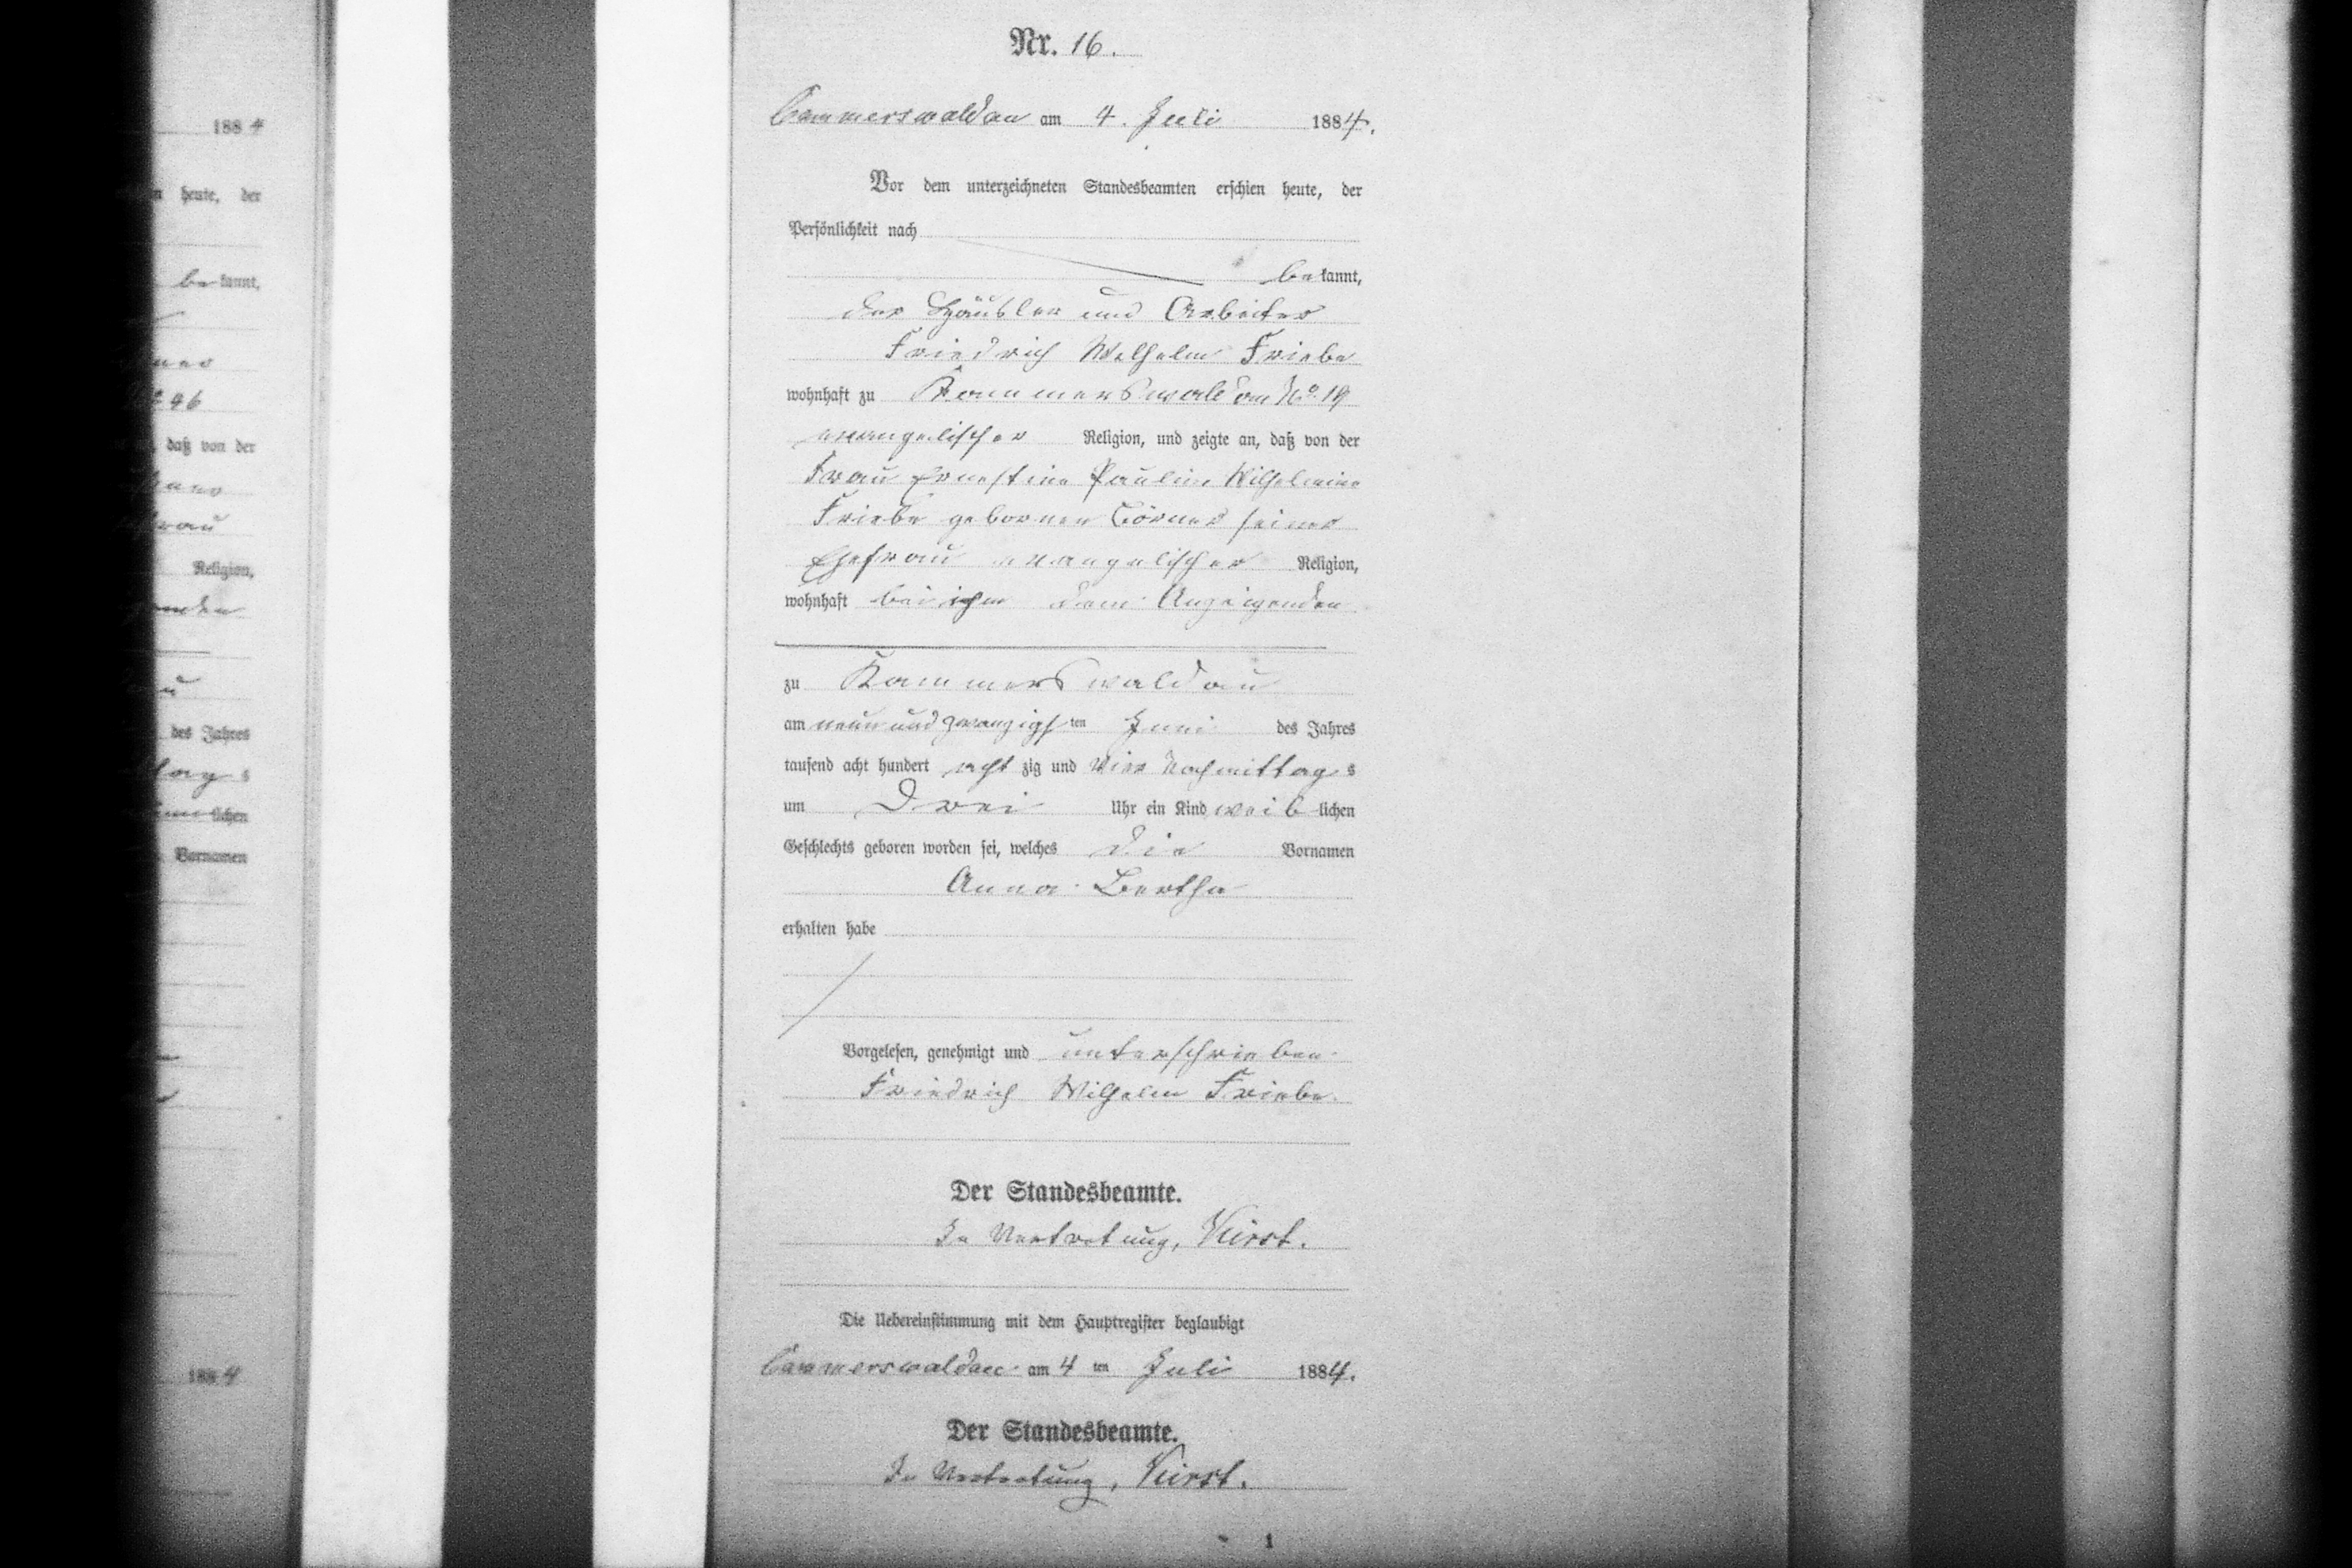 1884
n heute, der
bekannt,
№ 46
daß von der
frau
Religion,
des Jahres
tag s
lichen
Vornamen
1884
Nr. 16.
Cammerswaldau am 4. Juli 1884.
Vor dem unterzeichneten Standesbeamten erschien heute, der
Persönlichkeit nach
bekannt,
der Häusler und Arbeiter
Friedrich Wilhelm Friebe
wohnhaft zu Kammerswaldau No. 19
evangelischer Religion, und zeigte an, daß von der
Frau Ernestine Pauline Wilhelmine
Friebe gebornen Börner seiner
Ehefrau evangelischer Religion,
wohnhaft bei ihm dem Anzeigenden
zu Kammerswaldau
am neunundzwanzigsten Juni des Jahres
tausend acht hundert achtzig und vier Nachmittags
um Drei Uhr ein Kind weiblichen
Geschlechts geboren worden sei, welches die Vornamen
Anna Bertha
erhalten habe
Vorgelesen, genehmigt und unterschrieben
Friedrich Wilhelm Friebe
Der Standesbeamte.
In Vertretung,
Die Uebereinstimmung mit dem Hauptregister beglaubigt
Cammerswaldau am 4 ten Juli 1884.
Der Standesbeamte.
In Vertretung,
1